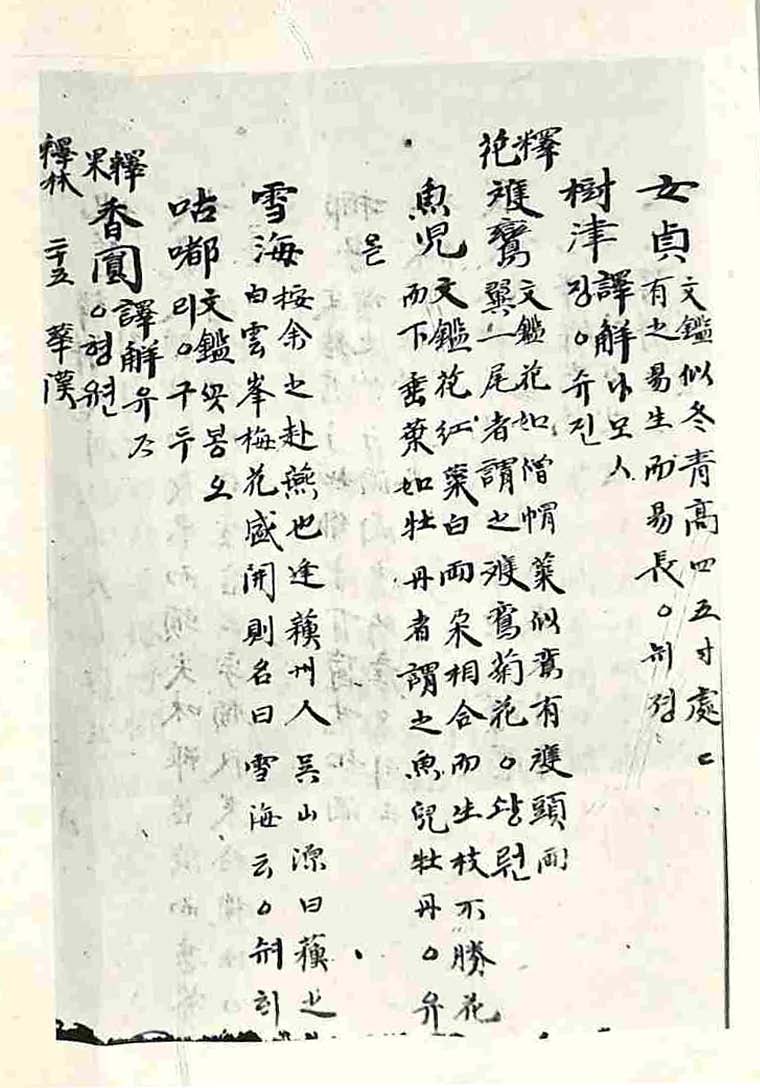 女貞 文鑑似冬青高四五寸處〻
有之易生而易長○뉘졍
樹津 譯解나모ㅅ
진○슈진
釋
花
雙鸞 文鑑花如僧帽葉似鸞有雙頭兩
翼一尾者謂之雙鸞菊花○솽롼
魚児 文鑑花紅葉白兩朶相合而生枝不勝花
而下垂葉如牡丹者謂之魚兒牡丹○유
을
雪海 按余之赴燕也逢蘓州人吳山源曰蘓之
白雲峯梅花盛開則名曰雪海云○쉬히
咕嘟 文鑑꼿봉오
리○구두
釋
果
香圓 譯解유ᄌᆞ
○향원
釋林 二十五 華漢